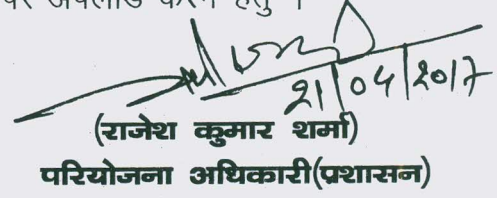 पर अपलोड करने हेतु ।
21/04/2017
(राजेश कुमार शर्मा)
परियोजना अधिकारी(प्रशासन)